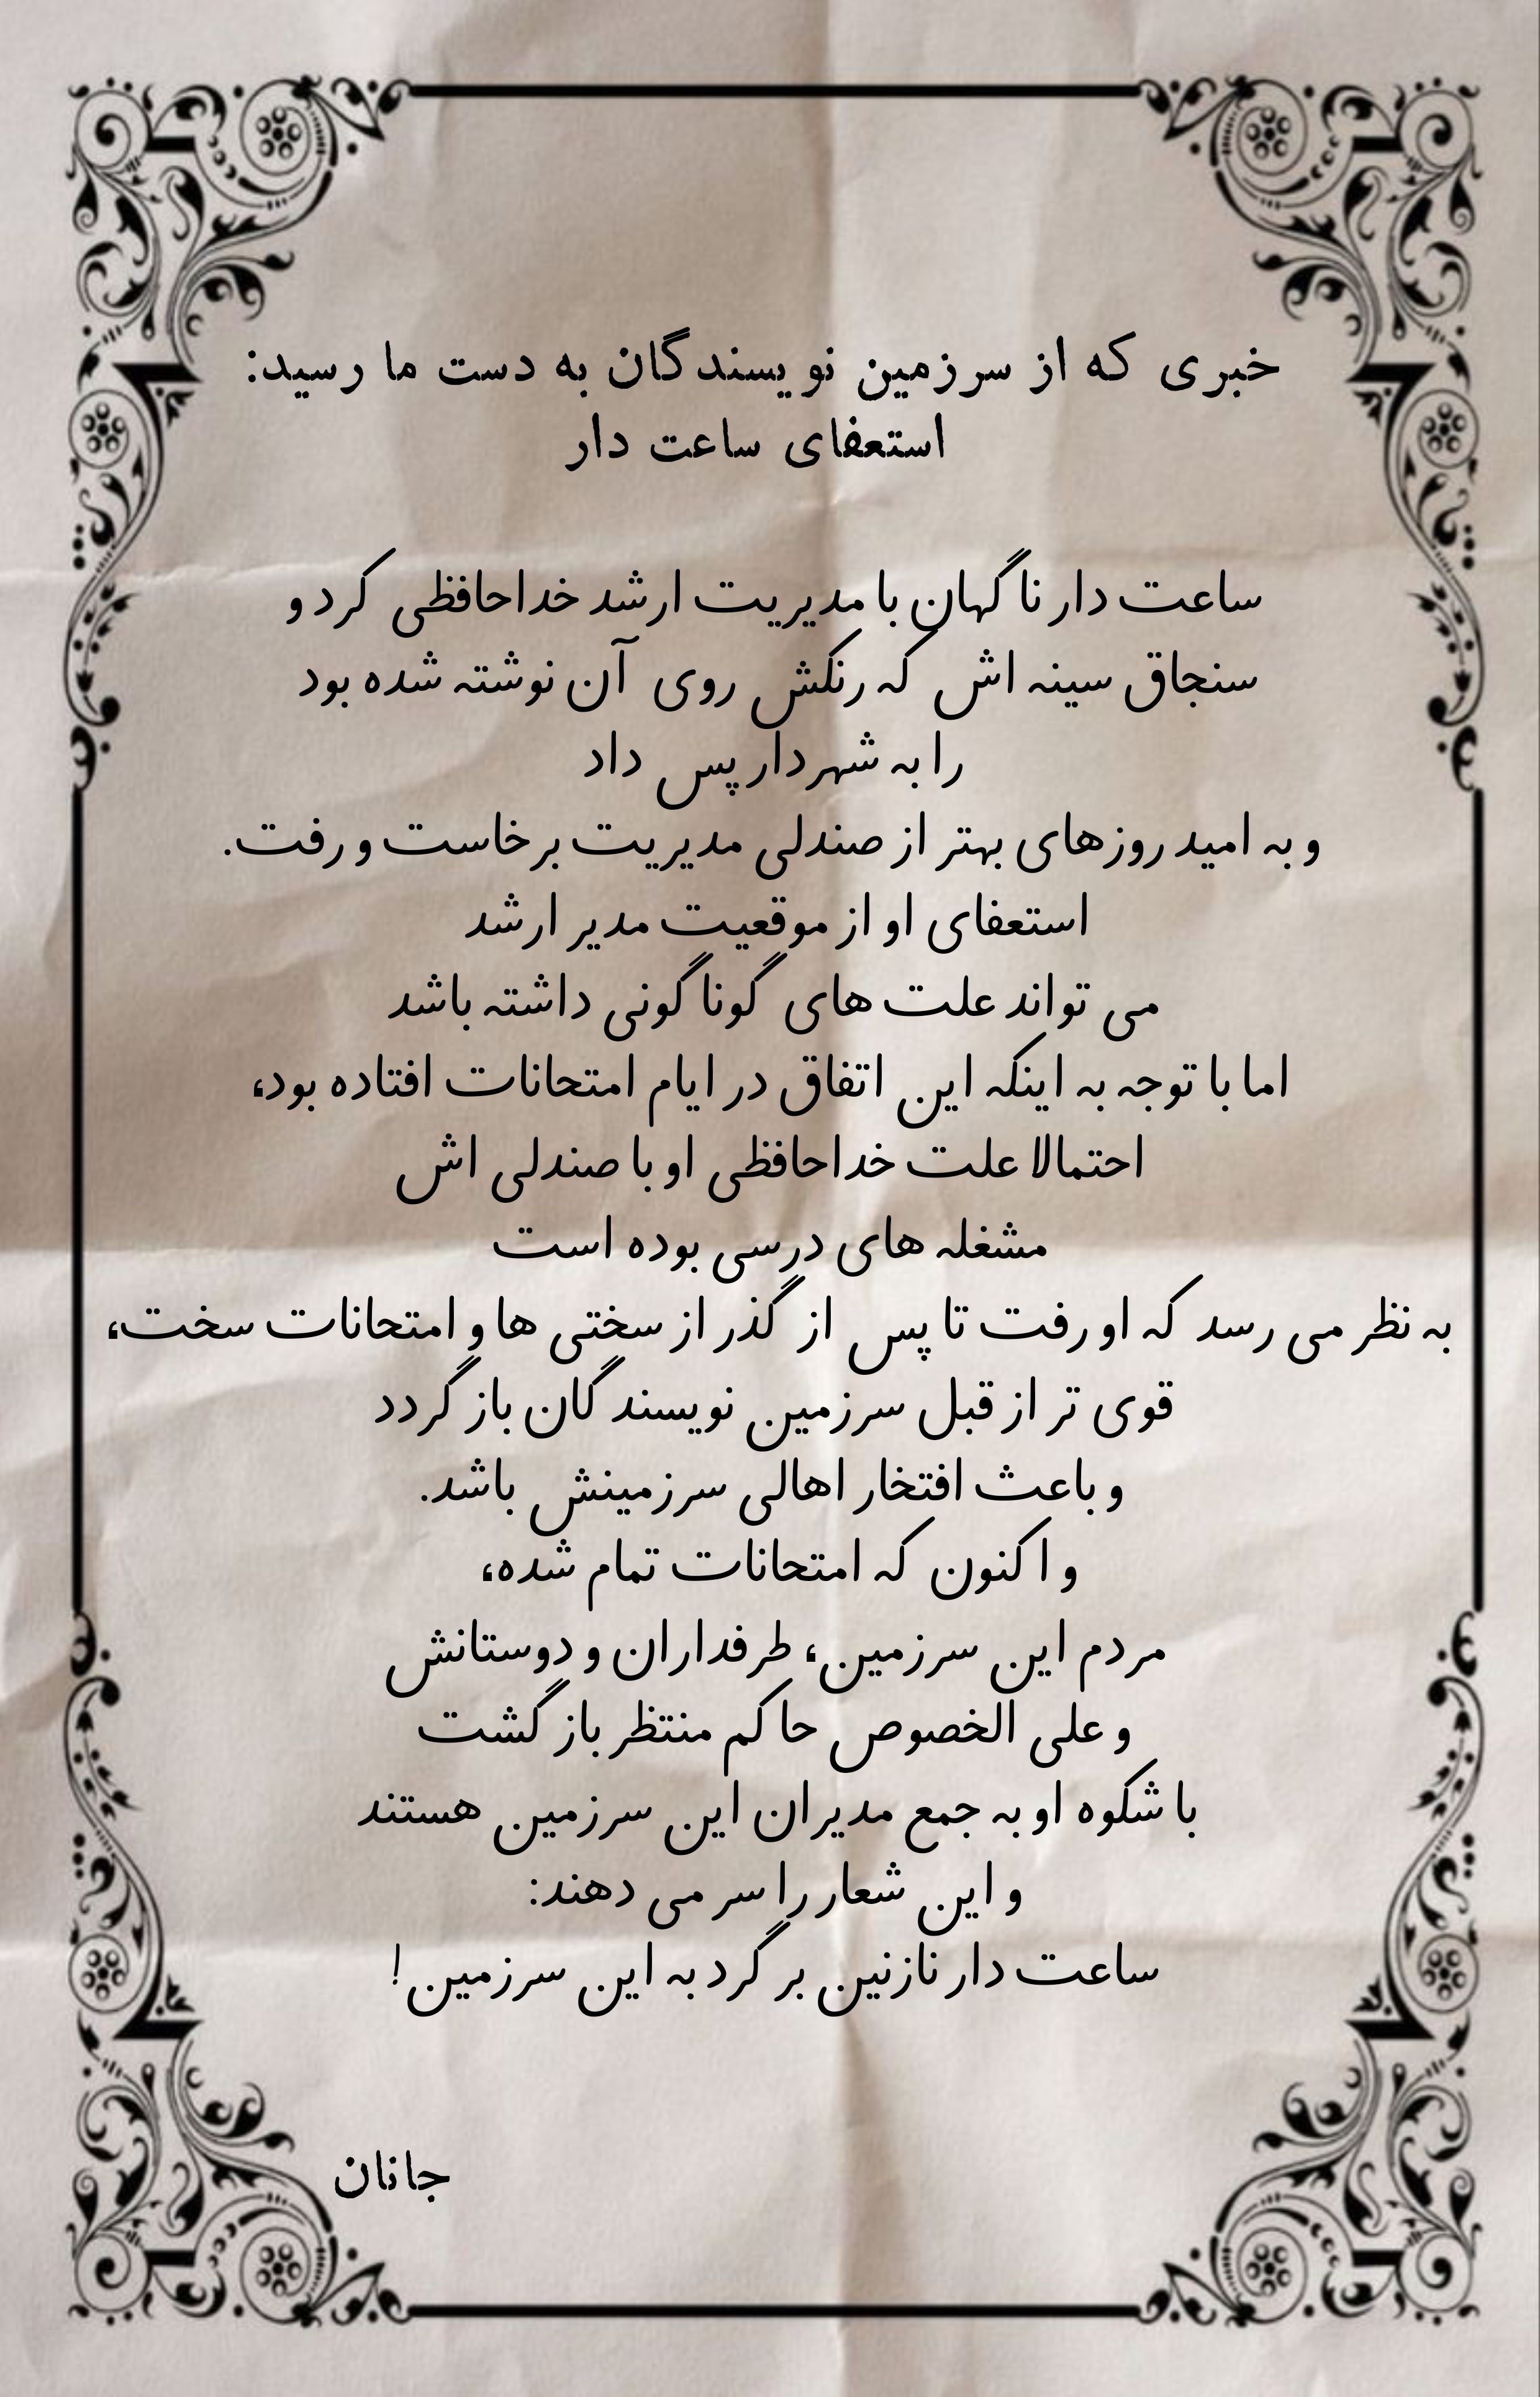 خبری که از سرزمین نویسندگان به دست ما رسید:
استعفای ساعت دار
ساعت دار ناگهان با مدیریت ارشد خداحافظی کرد و
سنجاق سینه اش که رنکش روی آن نوشته شده بود
را به شهردار پس داد
و به امید روزهای بهتر از صندلی مدیریت برخاست و رفت.
استعفای او از موقعیت مدیر ارشد
می تواند علت های گوناگونی داشته باشد
اما با توجه به اینکه این اتفاق در ایام امتحانات افتاده بود،
احتمالا علت خداحافظی او با صندلی اش
مشغله های درسی بوده است
به نظر می رسد که او رفت تا پس از گذر از سختی ها و امتحانات سخت،
قوی تر از قبل سرزمین نویسندگان بازگردد
و باعث افتخار اهالی سرزمینش باشد.
و اکنون که امتحانات تمام شده،
مردم این سرزمین، طرفداران و دوستانش
و علی الخصوص حاکم منتظر بازگشت
با شکوه او به جمع مدیران این سرزمین هستند
و این شعار را سر می دهند:
ساعت دار نازنین برگرد به این سرزمین!
جانان